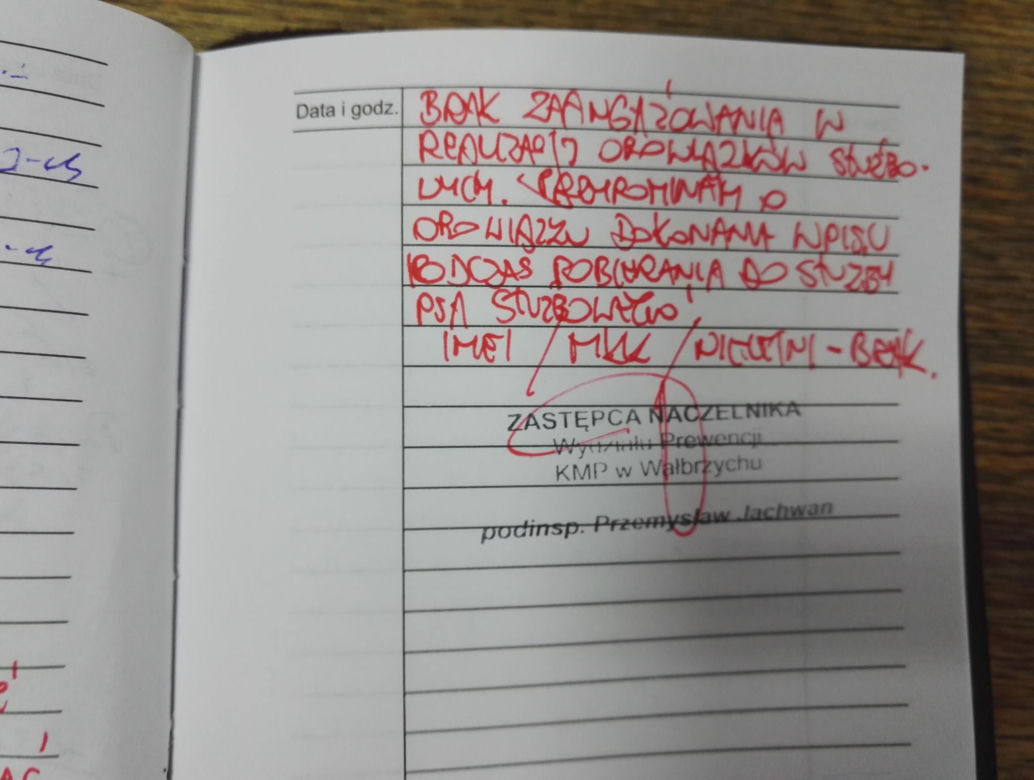 Data i godz. BRAK ZAANGAŻOWANIA W
REALIZACJI OBOWIĄZKÓW SŁUŻBO-
WYCH. PRZYPOMINAM O
OBOWIĄZKU DOKONANIA WPISU
PODCZAS POBIERANIA DO SŁUŻBY
PSA SŁUŻBOWEGO
IMEI / MKK / NIELETNI - BRAK.
ZASTĘPCA NACZELNIKA
Wydziału Prewencji
KMP w Wałbrzychu
podinsp. Przemysław Jachwan